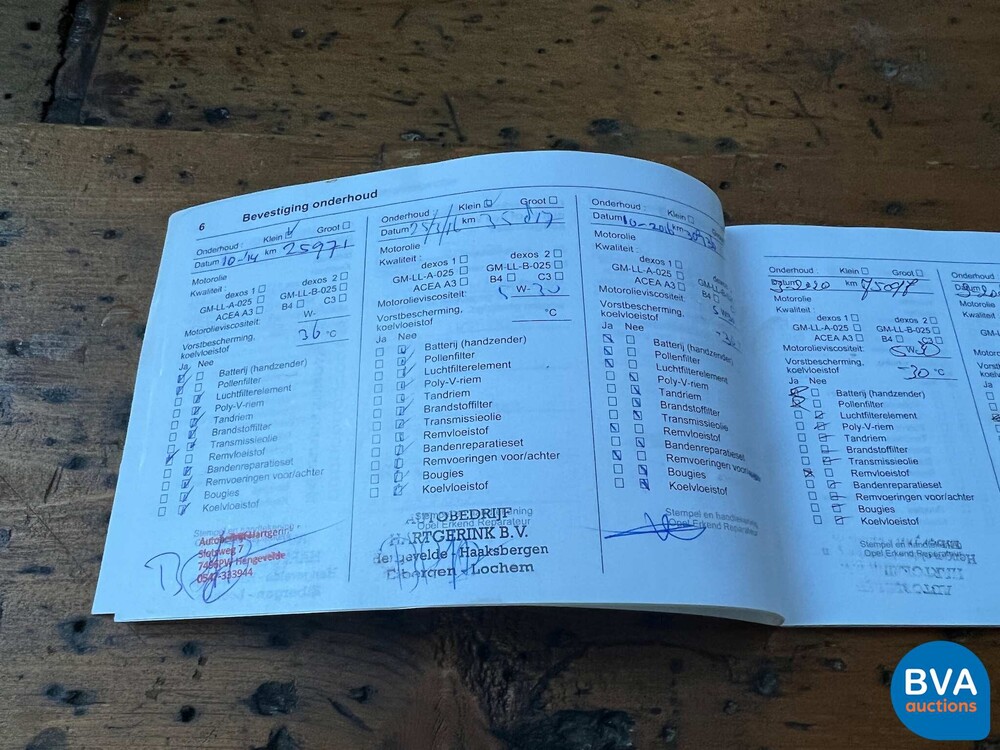 6 Bevestiging onderhoud
Onderhoud : Klein Groot
Datum 10-14 km 25971
Motorolie
Kwaliteit : dexos 1 dexos 2
GM-LL-A-025 GM-LL-B-025
ACEA A3 B4 C3
Motorolieviscositeit: W-
Vorstbescherming,
koelvloeistof 36 °C
Ja Nee
Batterij (handzender)
Pollenfilter
Luchtfilterelement
Poly-V-riem
Tandriem
Brandstoffilter
Transmissieolie
Remvloeistof
Bandenreparatieset
Remvoeringen voor/achter
Bougies
Koelvloeistof
Slotsweg 7
7496PW Hengevelde
0547-333944
Onderhoud : Klein Groot
Datum km
Motorolie
Kwaliteit: dexos 1 dexos 2
GM-LL-A-025 GM-LL-B-025
ACEA A3 B4 C3
Motorolieviscositeit: 5 W- 30
Vorstbescherming,
koelvloeistof °C
Ja Nee
Batterij (handzender)
Pollenfilter
Luchtfilterelement
Poly-V-riem
Tandriem
Brandstoffilter
Transmissieolie
Remvloeistof
Bandenreparatieset
Remvoeringen voor/achter
Bougies
Koelvloeistof
Opel Erkend Reparateur
AUTOBEDRIJF
HARTGERINK B.V.
Hengevelde - Haaksbergen
Eibergen - Lochem
Onderhoud : Klein
Datum 10-2016 km
Motorolie
Kwaliteit: dexos 1
GM-LL-A-025
ACEA A3 B4
Motorolieviscositeit:
Vorstbescherming,
koelvloeistof
Ja Nee
Batterij (handzender)
Pollenfilter
Luchtfilterelement
Poly-V-riem
Tandriem
Brandstoffilter
Transmissieolie
Remvloeistof
Bandenreparatieset
Remvoeringen
Bougies
Koelvloeistof
Stempel en
Opel Erkend Reparateur
Onderhoud : Klein Groot
Datum km 75098
Motorolie
Kwaliteit: dexos 1 dexos 2
GM-LL-A-025 GM-LL-B-025
ACEA A3 B4 C3
Motorolieviscositeit:
Vorstbescherming,
koelvloeistof -30 °C
Ja Nee
Batterij (handzender)
Pollenfilter
Luchtfilterelement
Poly-V-riem
Tandriem
Brandstoffilter
Transmissieolie
Remvloeistof
Bandenreparatieset
Remvoeringen voor/achter
Bougies
Koelvloeistof
Stempel en handtekening
Opel Erkend Reparateur
BVA
auctions